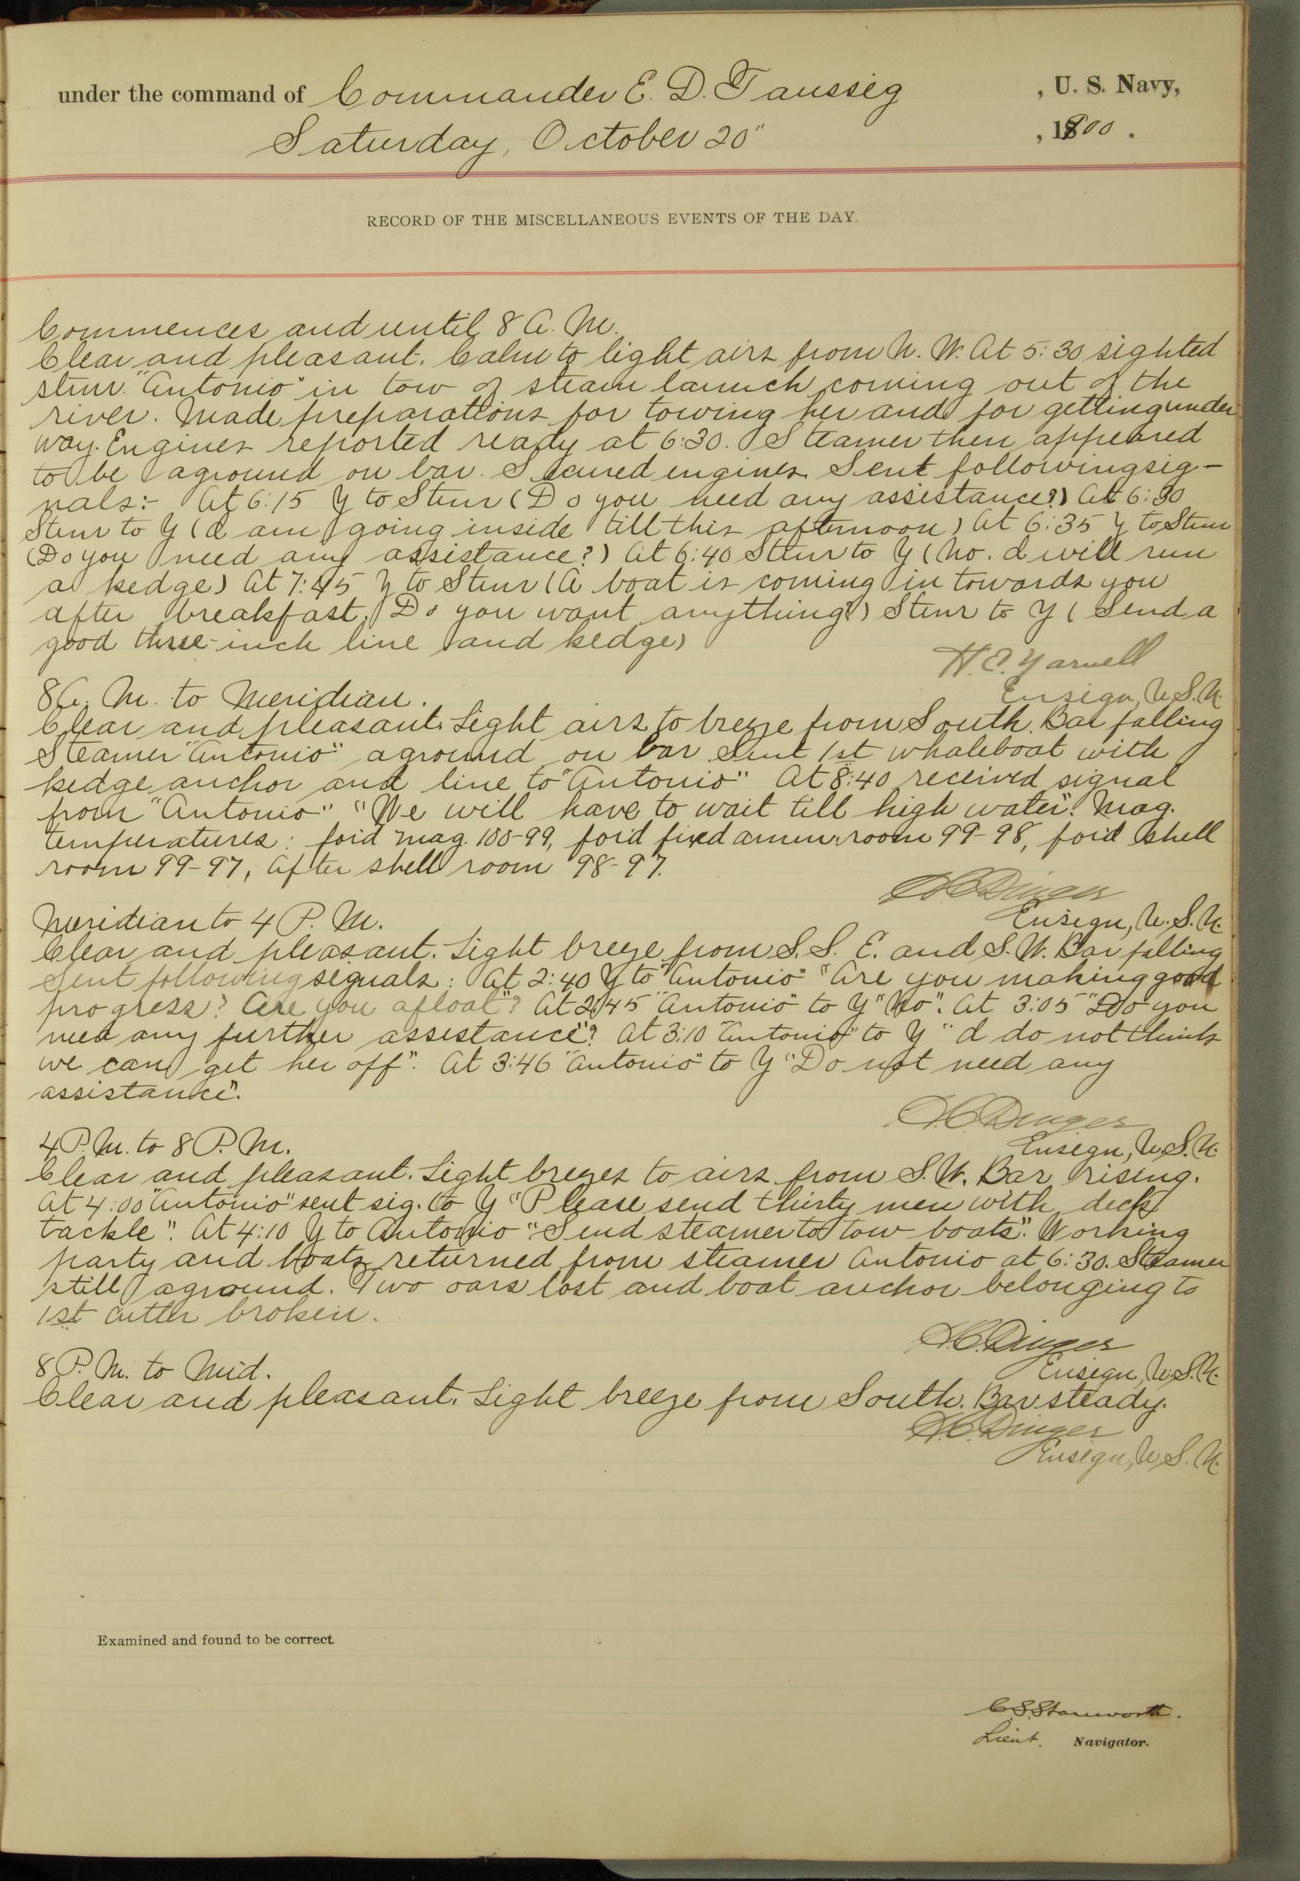 under the command of Commander E. D. Taussig , U. S. Navy,
Saturday, October 20" , 1900 .
RECORD OF THE MISCELLANEOUS EVENTS OF THE DAY.
Commences and until 8 A. M.
Clear and pleasant. Calm to light airs from N. W. At 5:30 sighted
stmr. "Antonio" in tow of steam launch coming out of the
river. Made preparations for towing her and for getting under
way. Engines reported ready at 6:30. Steamer then appeared
to be aground on bar. Secured engines. Sent following sig-
nals:- At 6:15 Y to Stmr (Do you need any assistance?) At 6:30
Stmr to Y (I am going inside till this afternoon) At 6:35 Y to Stmr
(Do you need any assistance?) At 6:40 Stmr to Y (No. I will run
a kedge) At 7:45 Y to Stmr (A boat is coming in towards you
after breakfast, Do you want anything?) Stmr to Y (Send a
good three-inch line and kedge)
H. E. Yarnell
Ensign, U.S.N.
8 A. M. to Meridian.
Clear and pleasant. Light airs to breeze from South. Bar falling
Steamer "Antonio" aground on bar Sent 1st whaleboat with
kedge anchor and line to "Antonio" At 8:40 received signal
from "Antonio" "We will have to wait till high water". Mag.
temperatures: for'd mag. 100-99, for'd fixed amm. room 99-98, for'd shell
room 99-97, After shell room 98-97.
H C Dinger
Ensign, U.S.N.
Meridian to 4 P. M.
Clear and pleasant. Light breeze from S. S. E. and S. W. Bar falling
Sent following signals: At 2:40 Y to "Antonio" "Are you making good
progress? Are you afloat"? At 2:45 "Antonio" to Y "No". At 3:05 "Do you
need any further assistance"? At 3:10 "Antonio" to Y "I do not think
we can get her off". At 3:46 "Antonio" to Y "Do not need any
assistance".
H C Dinger
Ensign, U.S.N.
4 P. M. to 8 P. M.
Clear and pleasant. Light breezes to airs from S. W. Bar rising.
At 4:00 "Antonio" sent sig. to Y "Please send thirty men with deck
tackle". At 4:10 Y to Antonio "Send steamer to tow boats". Working
party and boats returned from steamer Antonio at 6:30. Steamer
still aground. Two oars lost and boat anchor belonging to
1st cutter broken.
H. C. Dinger
Ensign, U.S.N.
8 P. M. to Mid.
Clear and pleasant. Light breeze from South. Bar steady.
H. C. Dinger
Ensign, U.S.N.
Examined and found to be correct.
C. S. Stanworth.
Lieut. Navigator.